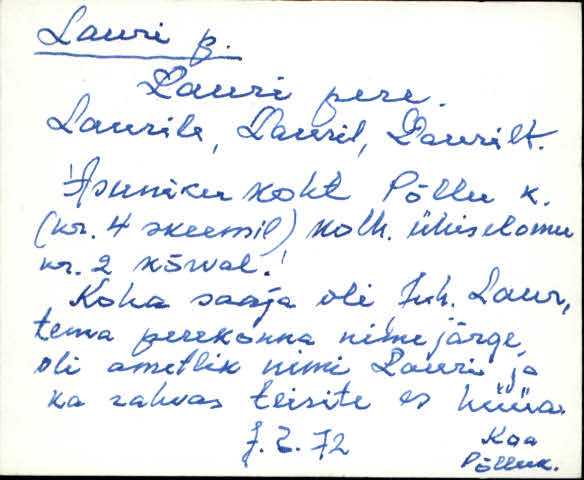 Lauri p.
Lauri pere.
Laurile, Lauril, Laurilt.
'Asuniku koht Põllu k.
(nr. 4 skeemil) kolh. ühiselamu
nr. 2 kõrval.'
Koha saaja oli Juh. Laur,
tema perekonna nime järge
oli ametlik nimi Lauri ja
ka rahvas teisite es hüüa.
J. T. 72
Kaa
Põlluk.